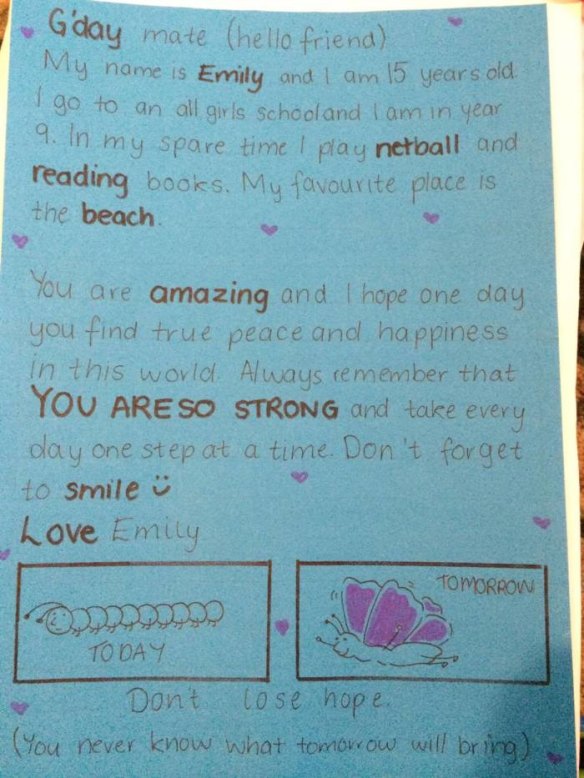 G'day mate (hello friend)
My name is Emily and I am 15 years old
I go to an all girls school and I am in year
9. In my spare time I play netball and
reading books. My favourite place is
the beach.
You are amazing and I hope one day
you find true peace and happiness
in this world. Always remember that
YOU ARE SO STRONG and take every
day one step at a time. Don't forget
to smile
Love Emily
TODAY
TOMORROW
Don't lose hope.
(You never know what tomorrow will bring)